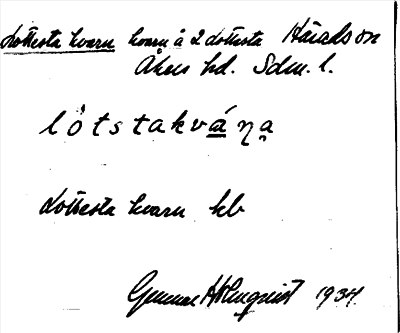 Lottesta kvarn kvarn å 2 Lottesta Härads on
Åkers hd. Sdm. l.
lòtstakvá̲ŋa̤
Lottesta kvarn kb
Gunnar Holmquist 1934.